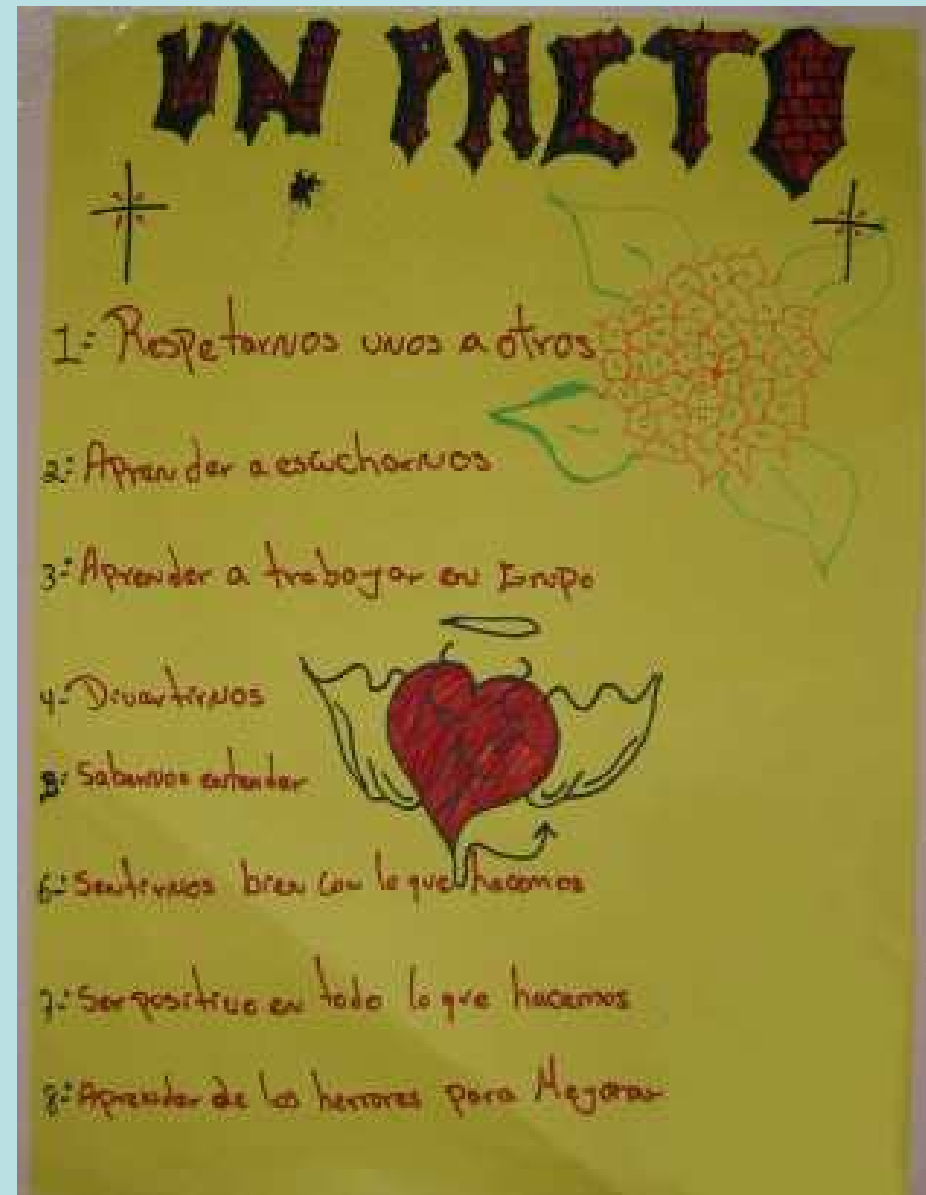 UN PACTO
1- Respetarnos unos a otros
2- Aprender a escucharnos
3- Aprender a trabayar en Grupo
4- Divertirnos
5- Sabernos entender
6- Sentirnos bien con lo que hacemos
7- Ser positivo en todo lo que hacemos
8- Aprender de los herrores para Meyorar